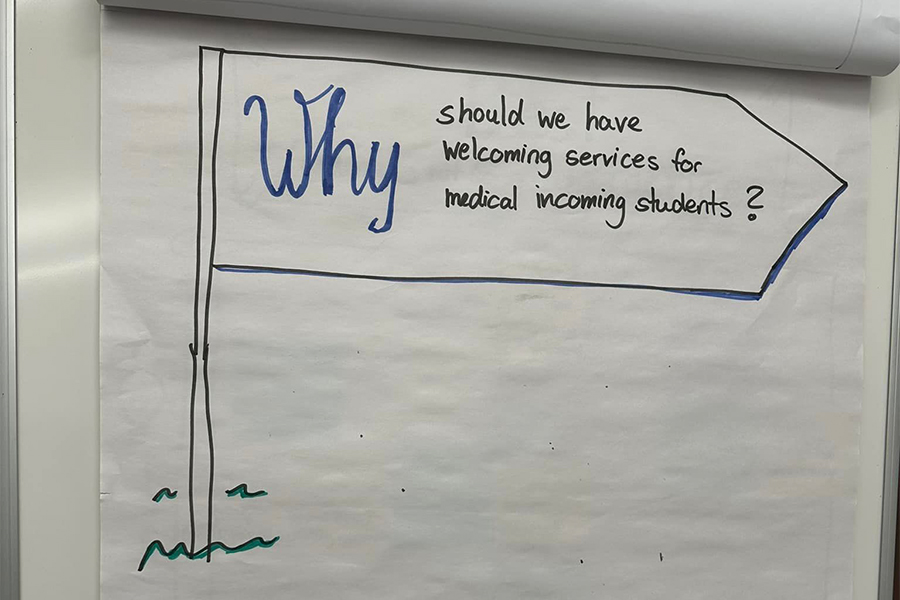 Why
should we have
welcoming services for
medical incoming students ?